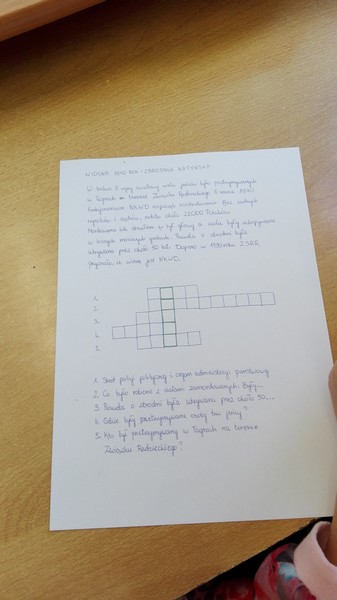 WIOSNA 1940 ROK - ZBRODNIA KATYŃSKA
W czasie II wojny światowej wielu jeńców było przetrzymywanych
w łagrach na terenie Związku Radzieckiego. 5 marca 1940
funkcjonariusze NKWD rozpoczęli rozstrzeliwanie. Bez żadnych
wyroków i sądów, zabito około 22000 Polaków.
Mordowano ich strzałem w tył głowy a ciała były
w masowych grobach. Prawda o zbrodni była
ukrywana przez około 50 lat. Dopiero w 1990 roku ZSRR
przyznało, że winne jest NKWD.
1.
2.
3.
4.
5.
1. Skrót policji politycznej i organ administracji państwowej
2. Co było robione z ciałami zamordowanych? Były...
3. Prawda o zbrodni była ukrywana przez około 50...
4. Gdzie były przetrzymywane osoby bez winy?
5. Kto był przetrzymywany w łagrach na terenie
Związku Radzieckiego?